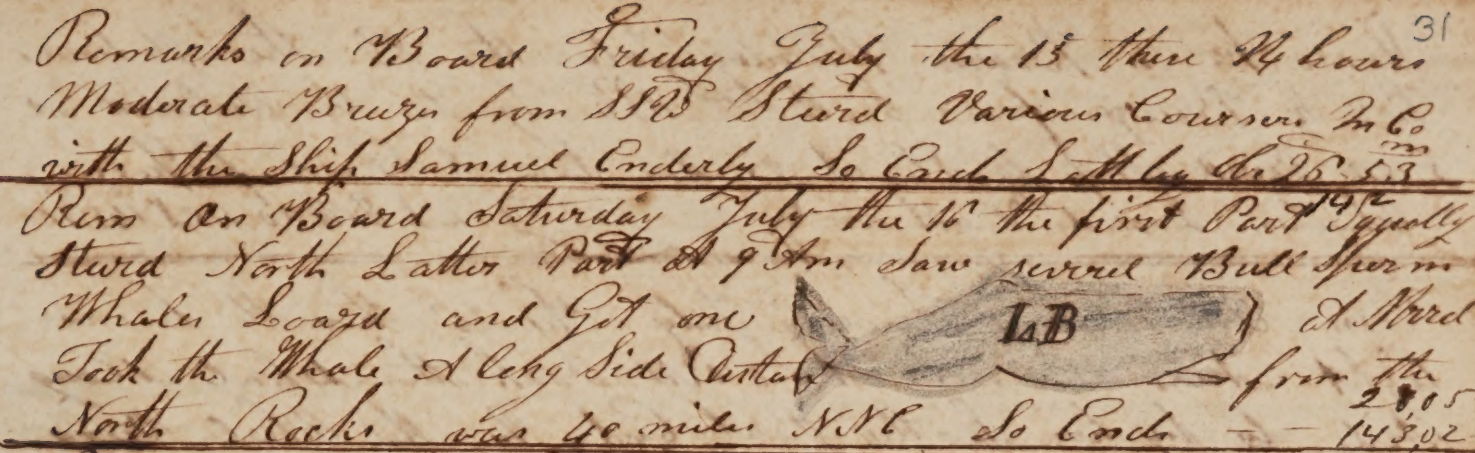 31
Remarks on Board Friday July the 15 these 24 hours
Moderate Breezes from SSW Sturd Various Courses In Co
with the Ship Samuel Enderby So Ends Latt by Ob 26 53
Rem on Board Saturday July the 16 the first Part Squally
Sturd North Latter Part At 9 Am Saw severel Bull Sperm
Whales Loard and Got one LB at
Took the Whale A long Side Distant from the
North Rocks was 40 miles NNE So Ends 143,02